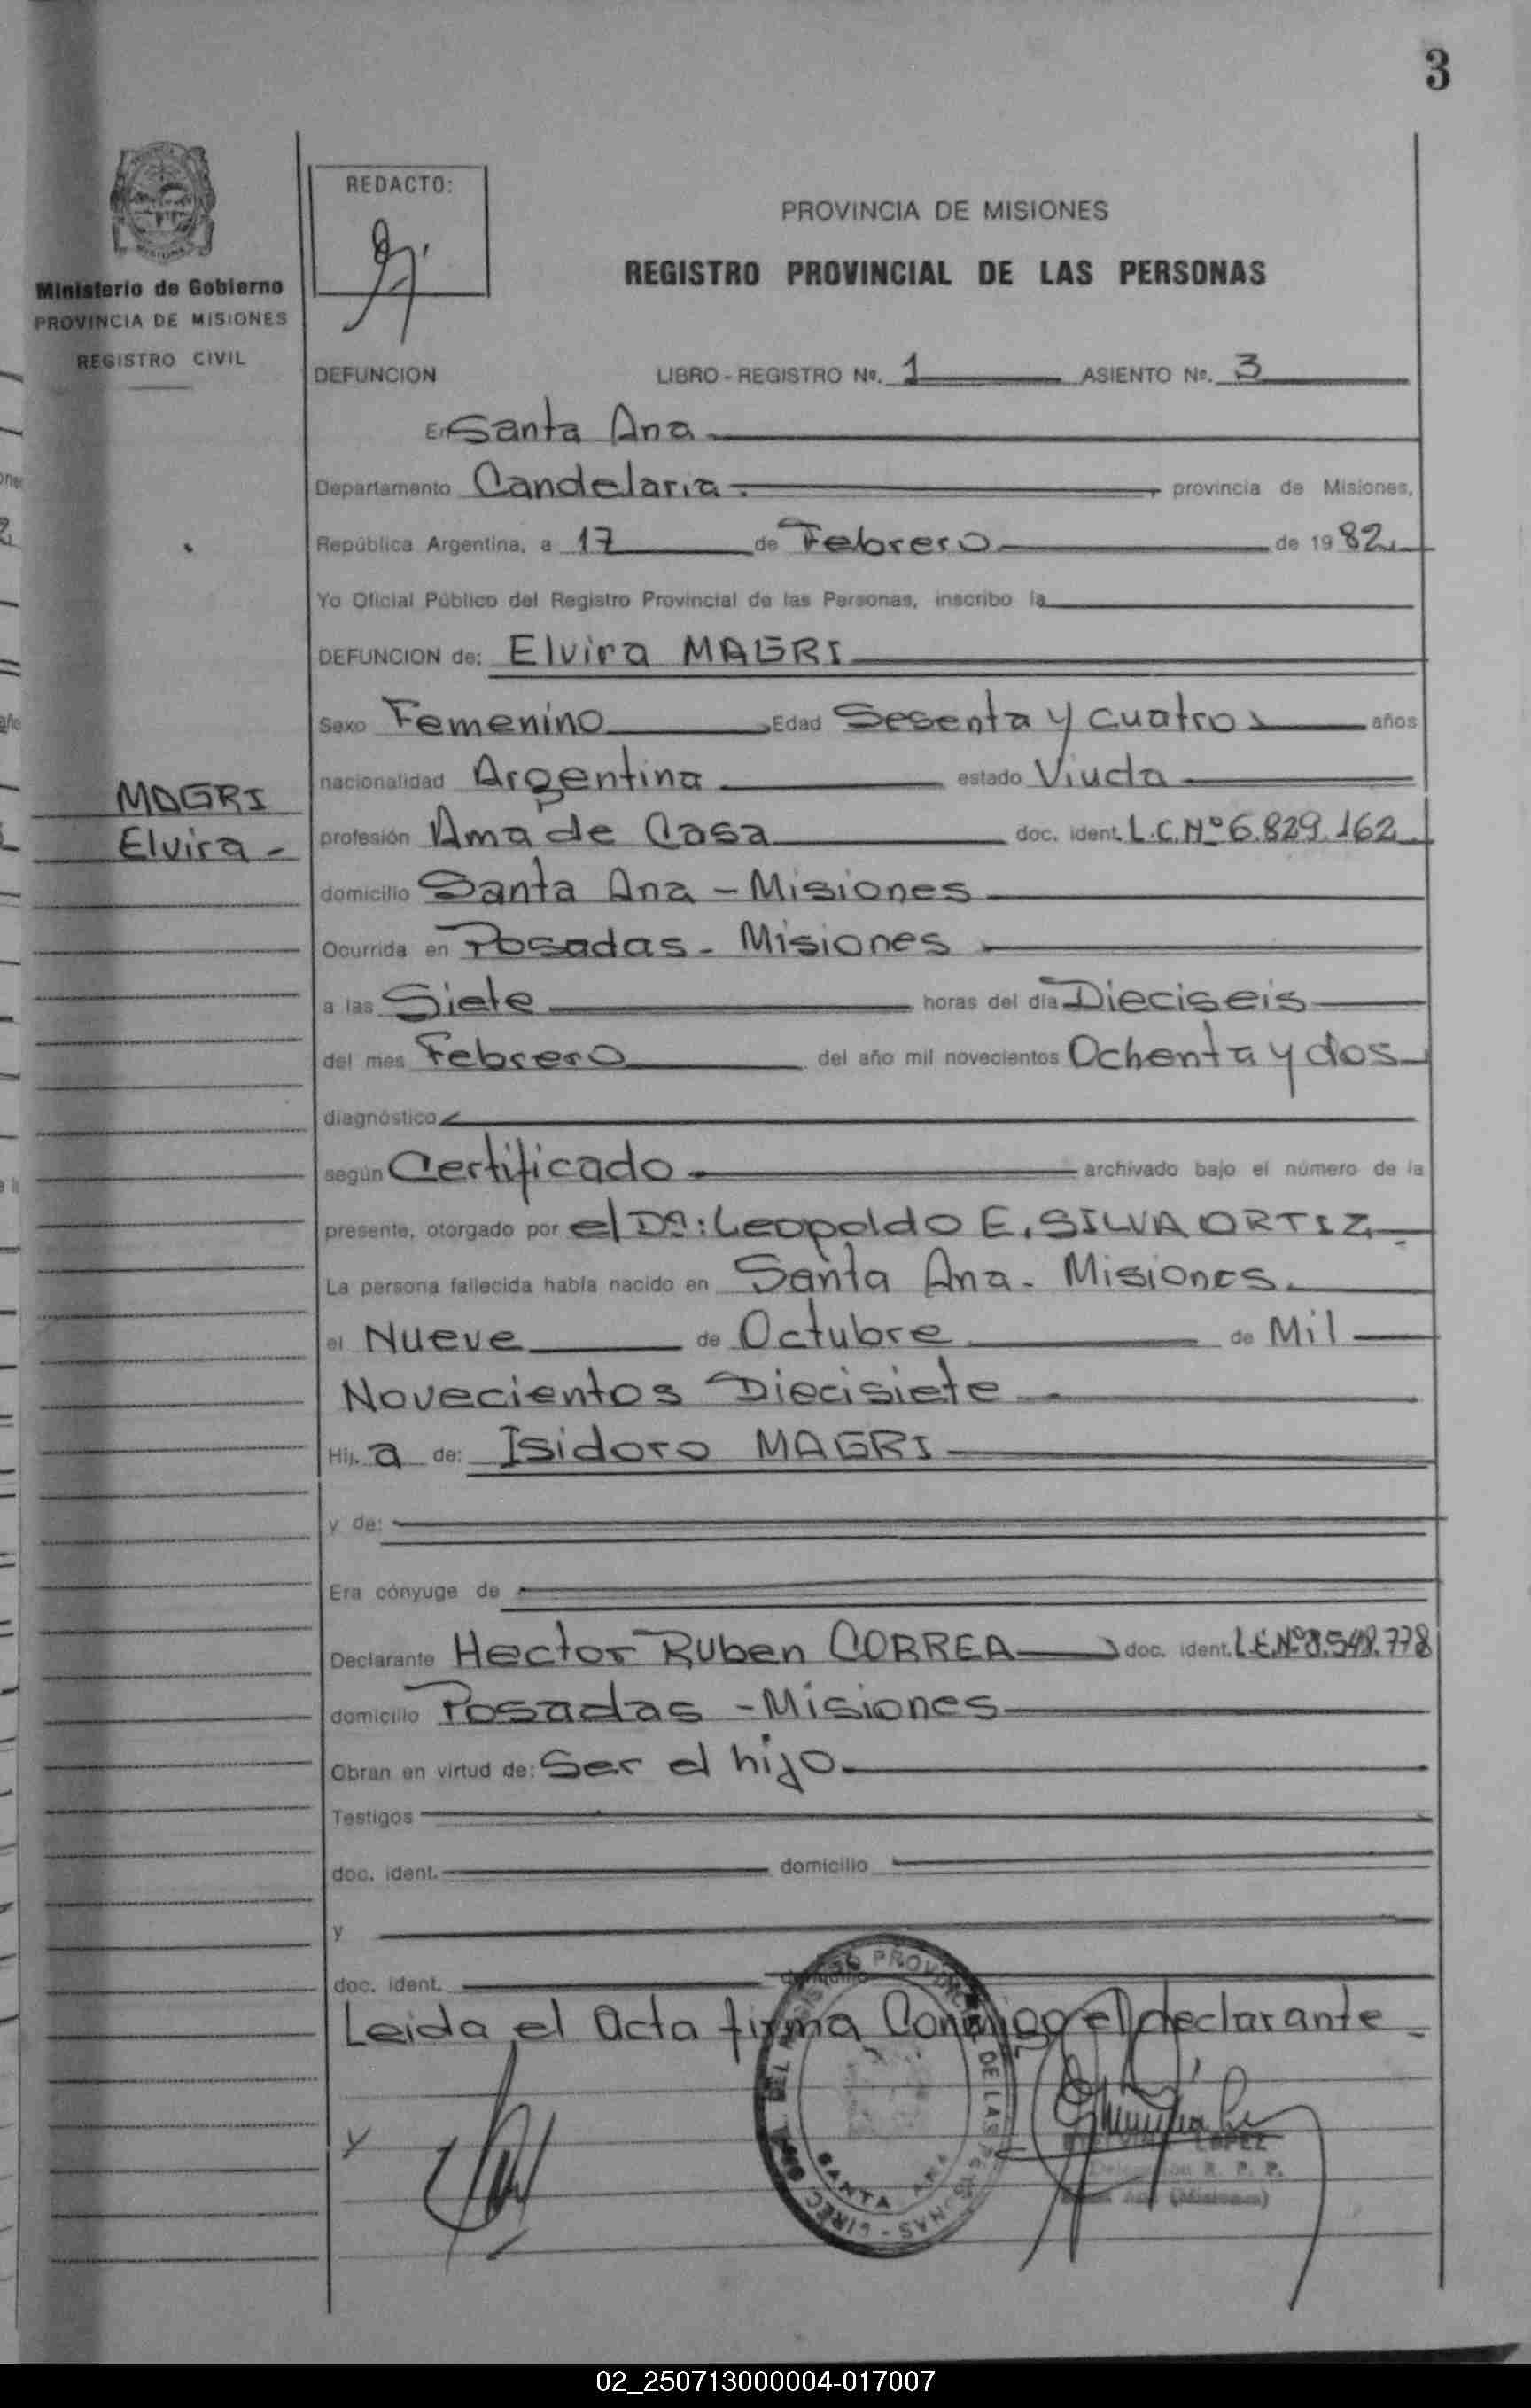 3
REDACTO:
PROVINCIA DE MISIONES
REGISTRO PROVINCIAL DE LAS PERSONAS
Ministerio de Gobierno
PROVINCIA DE MISIONES
REGISTRO CIVIL
DEFUNCION LIBRO - REGISTRO Nº. 1 ASIENTO Nº. 3
En Santa Ana
Departamento Candelaria. provincia de Misiones,
República Argentina, a 17 de Febrero de 19 82
Yo Oficial Público del Registro Provincial de las Personas, inscribo la
DEFUNCION de: Elvira MAGRI
Sexo Femenino Edad Sesenta y cuatro años
nacionalidad Argentina estado Viuda
MAGRI
Elvira -
profesión Ama de Casa doc. ident. L.C.Nº 6.829.162
domicilio Santa Ana - Misiones
Ocurrida en Posadas - Misiones
a las Siete horas del día Dieciseis
del mes Febrero del año mil novecientos Ochenta y dos
diagnóstico
según Certificado archivado bajo el número de la
presente, otorgado por el Dr: Leopoldo E. SILVA ORTIZ
La persona fallecida había nacido en Santa Ana - Misiones.
el Nueve de Octubre de Mil
Novecientos Diecisiete
Hij. a de: Isidoro MAGRI
y de:
Era cónyuge de
Declarante Hector Ruben CORREA doc. ident. L.E.Nº 8.548.778
domicilio Posadas - Misiones
Obran en virtud de: Ser el hijo.
Testigos
doc. ident. domicilio
y
doc. ident.
Leida el Acta firma Conmigo el declarante
y
SANTA ANA
LOPEZ
R. P. P.
(Misiones)
02_250713000004-017007